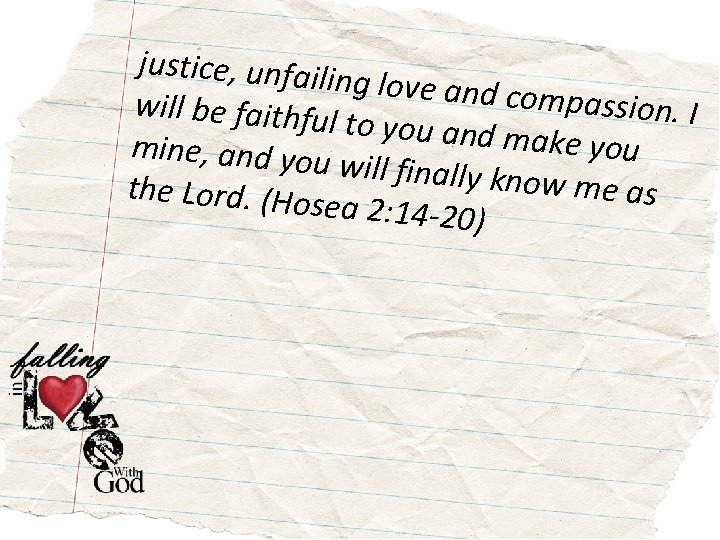 justice, unfailing love and compassion. I
will be faithful to you and make you
mine, and you will finally know me as
the Lord. (Hosea 2:14-20)
falling
in
LOVE
With
God